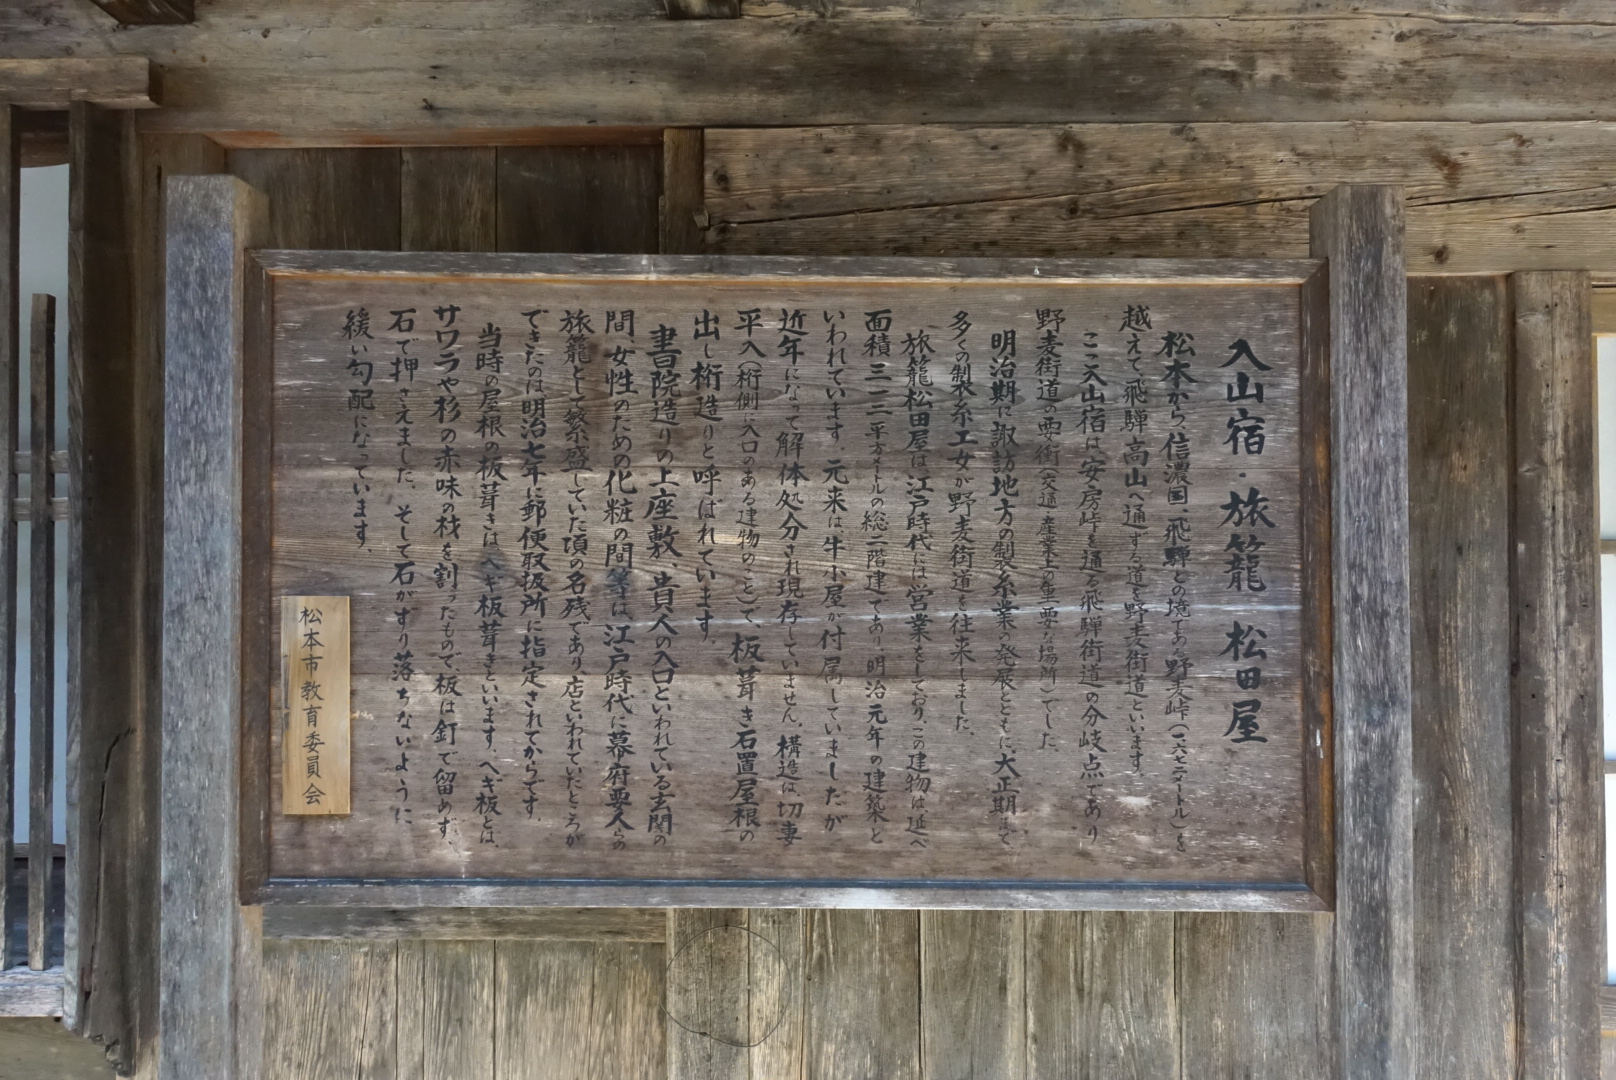 入山宿・旅籠 松田屋
松本から、信濃国、飛騨との境である野麦峠(一六七二メートル)を
越えて、飛騨高山へ通ずる道を野麦街道といいます。
ここ入山宿は、安房峠を通る飛騨街道の分岐点であり
野麦街道の要衝(交通、産業上の重要な場所)でした。
明治期に諏訪地方の製糸業の発展とともに、大正期まで
多くの製糸工女が野麦街道を往来しました。
旅籠松田屋は、江戸時代には営業をしており、この建物は延べ
面積三一三平方メートルの総二階建であり、明治元年の建築と
いわれています。元来は、牛小屋が付属していましたが
近年になって解体処分され現存していません。構造は、切妻
平入(桁側に入口のある建物のこと)で、板葺き石置屋根の
出し桁造りと呼ばれています。
書院造りの上座敷、貴人の入口といわれている玄関の
間、女性のための化粧の間等は、江戸時代に幕府要人らの
旅籠として繁盛していた頃の名残であり店といわれていたところが
できたのは明治七年に郵便取扱所に指定されてからです。
当時の屋根の板葺きは、ヘギ板葺きといいます。ヘギ板とは、
サワラや杉の赤味の材を割ったもので、板は釘で留めず、
石で押さえました。そして石がずり落ちないように
緩い勾配になっています。
松本市教育委員会